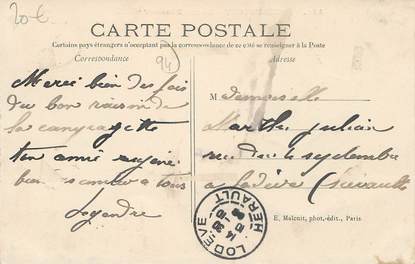 20€
CARTE POSTALE
Certains pays étrangers n'acceptant pas la correspondance de ce côté se renseigner à la Poste
Correspondance
94
Adresse
Merci bien des fois
du bon raisin de
la
ton amie
bon a tous
Legendre
Mademoiselle
Marthe julian
rue du 4 septembre
a
LODEVE
HERAULT
E. Malcuit, phot.-édit., Paris